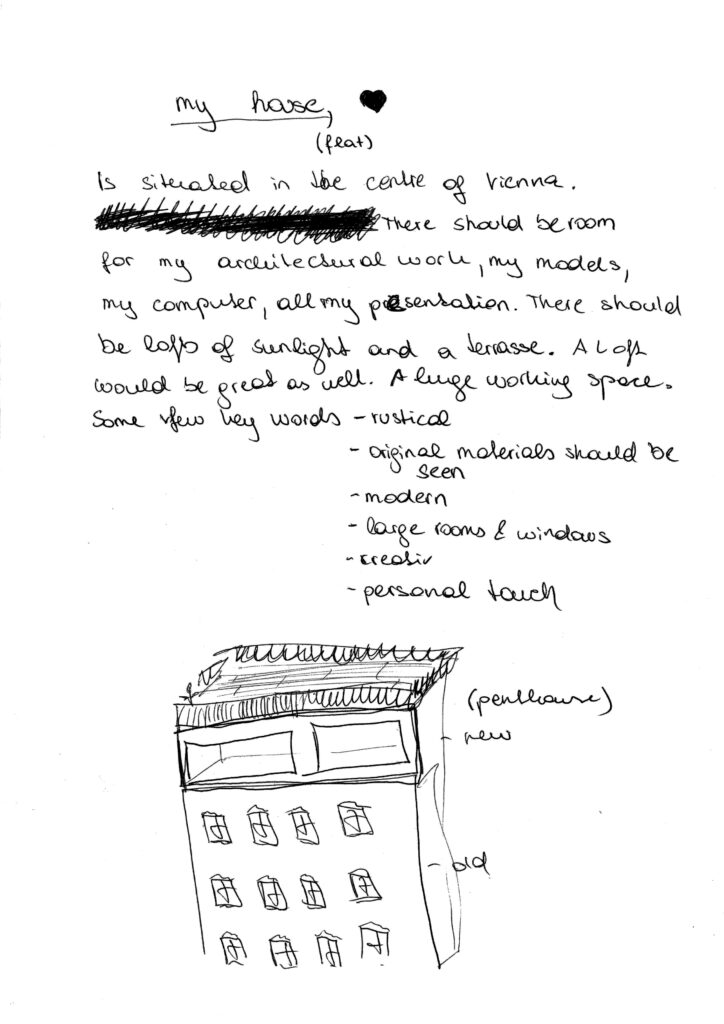 my house,
(flat)
Is situated in the centre of Vienna.
There should be room
for my architectural work, my models,
my computer, all my presentation. There should
be lofts of sunlight and a terrasse. A Loft
would be great as well. A huge working space.
Some few key words - rustical
- original materials should be
seen
- modern
- large rooms & windows
- creativ
- personal touch
(penthouse)
- new
- old